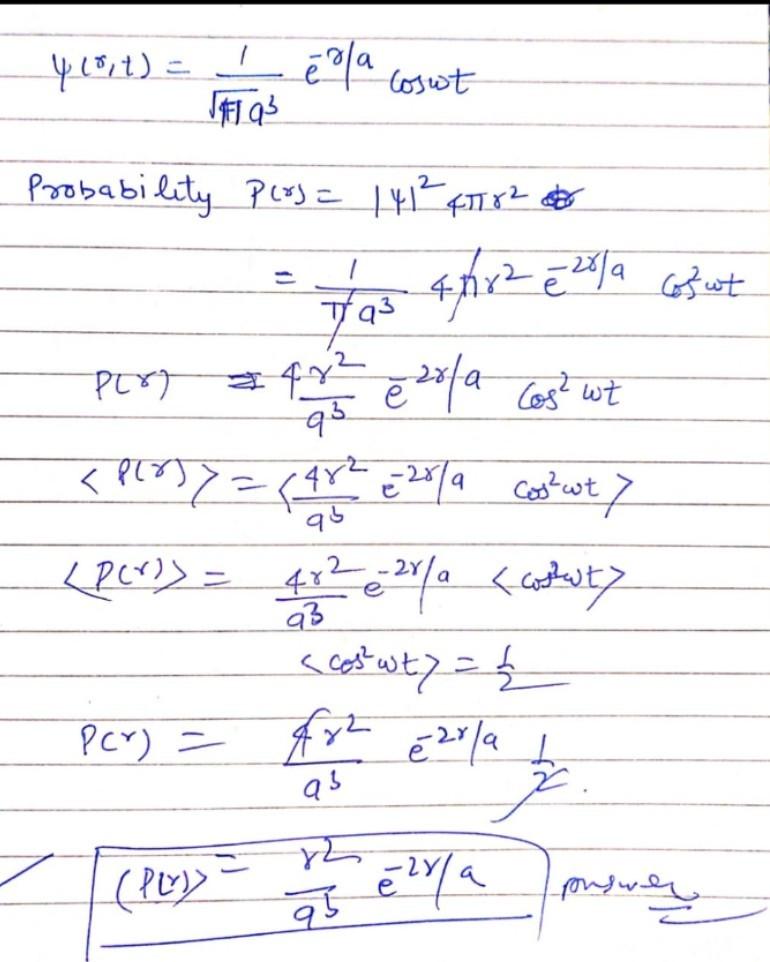 ψ(r,t) = 1/√π a³ e^-r/a cosωt
Probability P(r) = |ψ|² 4πr²
= 1/πa³ 4πr² e^-2r/a cos²ωt
P(r) = 4r²/a³ e^-2r/a cos² ωt
<P(r)> = <4r²/a³ e^-2r/a cos²ωt>
<P(r)> = 4r²/a³ e^-2r/a <cos²ωt>
<cos²ωt> = 1/2
P(r) = 4r²/a³ e^-2r/a 1/2.
(P(r)> = r²/a³ e^-2r/a answer